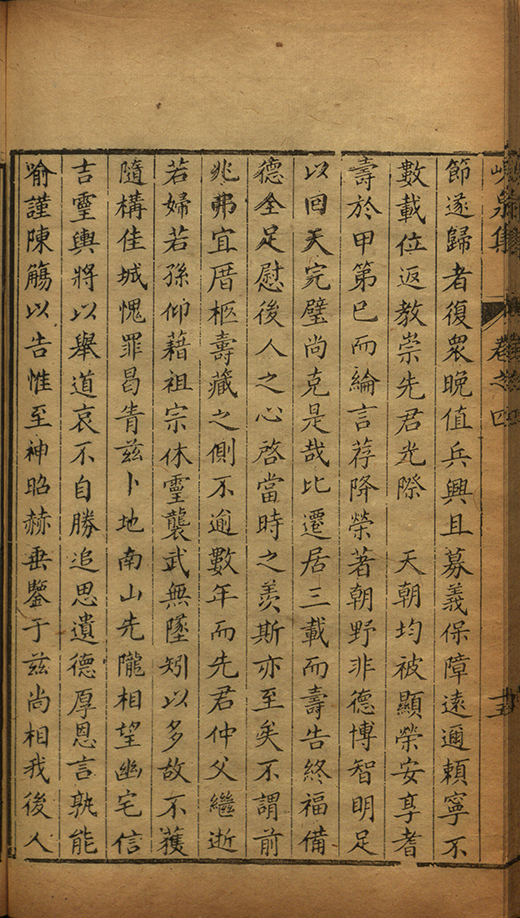 峴泉集 卷之四 十五
節遂歸者復眾晚值兵興且募義保障遠邇賴寧不
數載位返教崇先君光際 天朝均被顯榮安享耆
壽於甲第已而綸言荐降榮著朝野非德博智明足
以回天完璧尚克是哉比遷居三載而壽告終福備
德全足慰後人之心啓當時之羨斯亦至矣不謂前
兆弗宜厝柩壽藏之側不逾數年而先君仲父繼逝
若婦若孫仰藉祖宗休霊襲武無墜矧以多故不獲
隨構佳城愧罪曷眚兹卜地南山先隴相望幽宅信
吉霊輿將以舉道哀不自勝追思遺德厚恩言孰能
喻謹陳觴以告惟至神昭赫垂鑒于兹尚相我後人